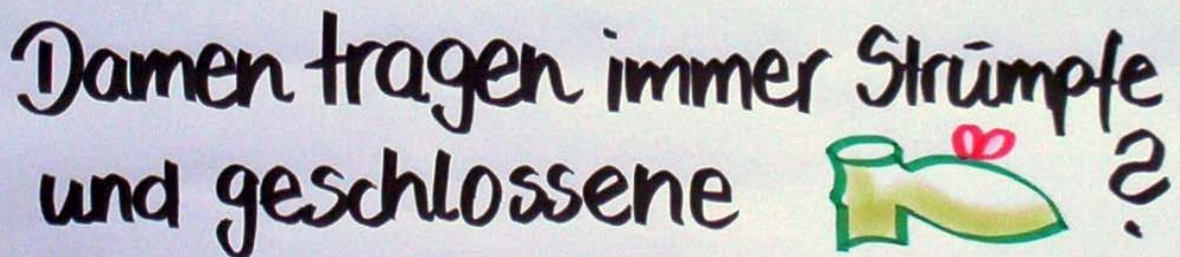 Damen tragen immer Strümpfe
und geschlossene ?